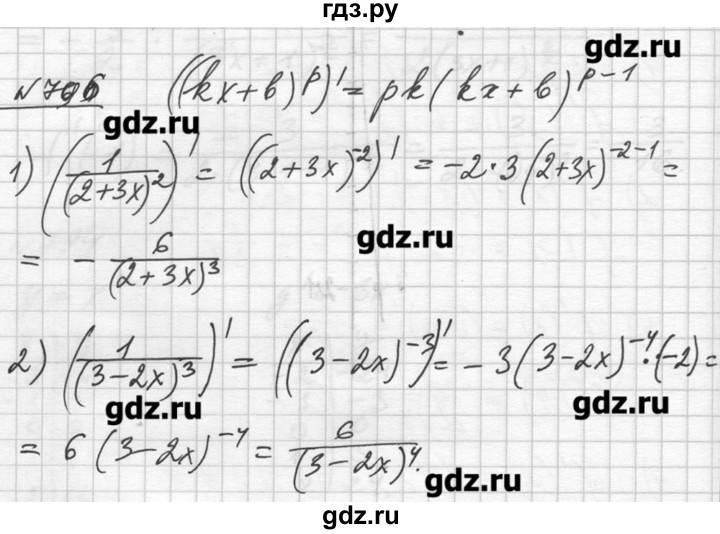 гдз.ру
gdz.ru
№ 796 ((kx+b)^p)' = pk(kx+b)^{p-1}
gdz.ru
1) (1/(2+3x)^2)' = ((2+3x)^{-2})' = -2·3(2+3x)^{-2-1} =
gdz.ru
= - 6/(2+3x)^3
2) (1/(3-2x)^3)' = ((3-2x)^{-3})' = -3(3-2x)^{-4}·(-2) =
gdz.ru
gdz.ru
= 6(3-2x)^{-4} = 6/(3-2x)^4.
gdz.ru
gdz.ru